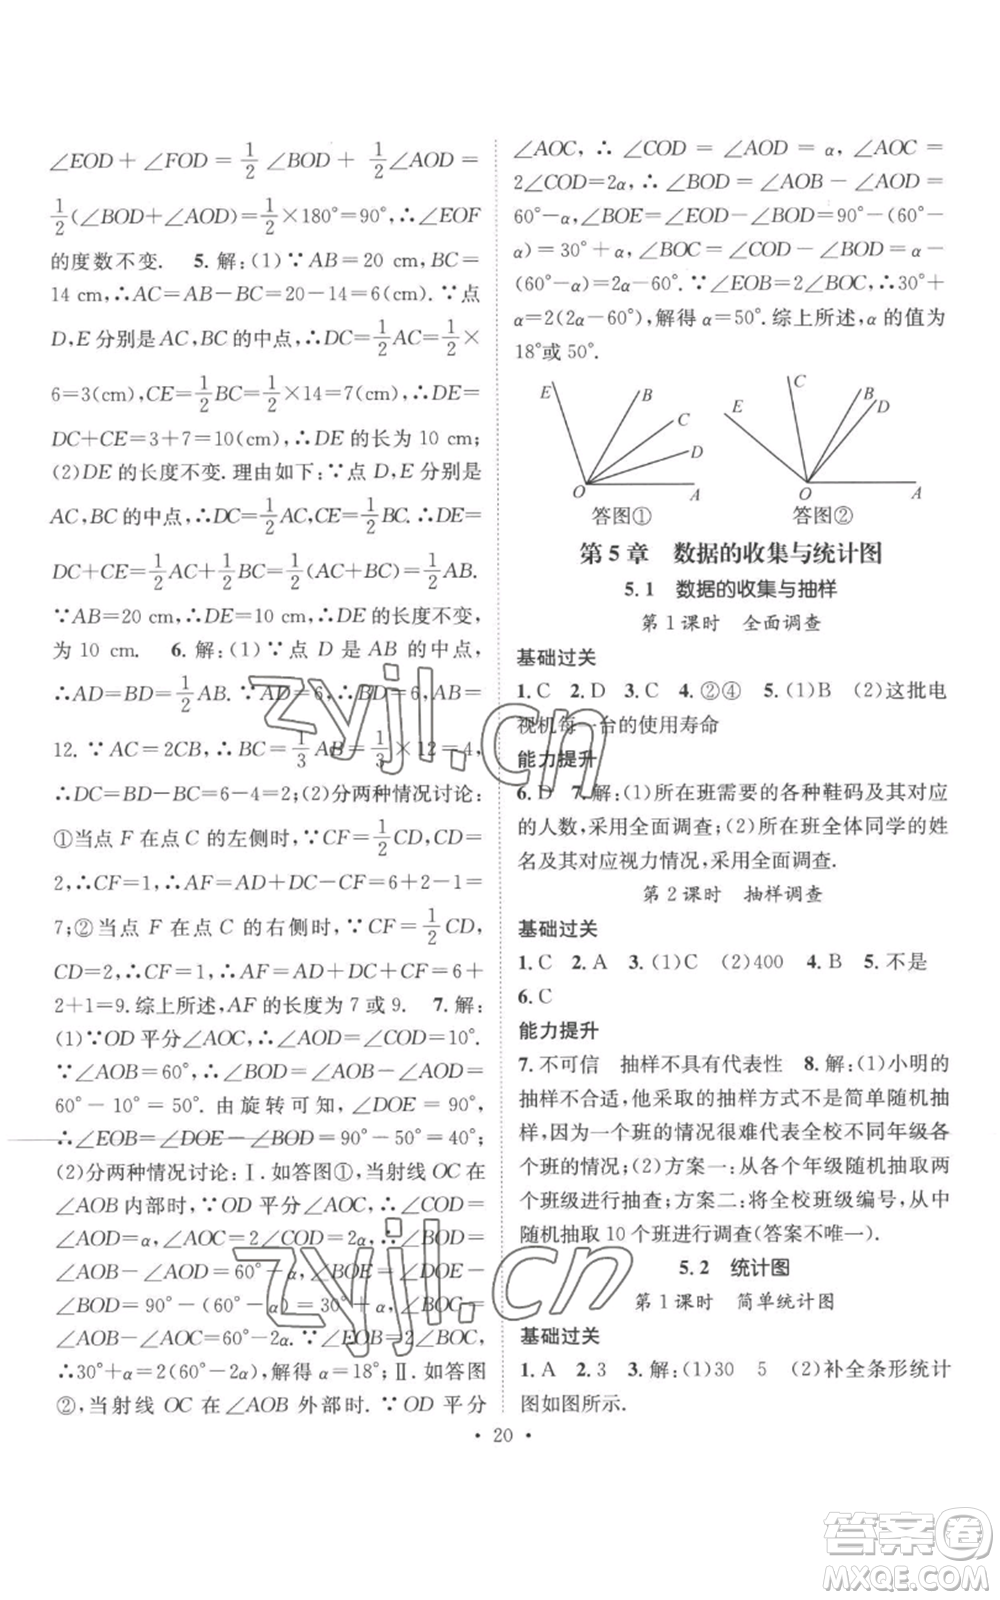 ∠EOD + ∠FOD = 1/2 ∠BOD + 1/2∠AOD =
1/2(∠BOD+∠AOD)=1/2×180°=90°,∴∠EOF
的度数不变. 5.解:(1)∵AB=20 cm,BC=
14 cm,∴AC=AB-BC=20-14=6(cm).∵点
D,E分别是AC,BC的中点,∴DC=1/2AC=1/2×
6=3(cm),CE=1/2BC=1/2×14=7(cm).∴DE=
DC+CE=3+7=10(cm),∴DE的长为10 cm;
(2)DE的长度不变.理由如下:∵点D,E分别是
AC,BC的中点,∴DC=1/2AC,CE=1/2BC.∴DE=
DC+CE=1/2AC+1/2BC=1/2(AC+BC)=1/2AB.
∵AB=20 cm,∴DE=10 cm,∴DE的长度不变,
为10 cm. 6.解:(1)∵点D是AB的中点,
∴AD=BD=1/2AB.∵AD=6,∴BD=6,AB=
12.∵AC=2CB,∴BC=1/3AB=1/3×12=4,
∴DC=BD-BC=6-4=2;(2)分两种情况讨论:
①当点F在点C的左侧时,∵CF=1/2CD,CD=
2,∴CF=1,∴AF=AD+DC-CF=6+2-1=
7;②当点F在点C的右侧时,∵CF=1/2CD,
CD=2,∴CF=1,∴AF=AD+DC+CF=6+
2+1=9.综上所述,AF的长度为7或9. 7.解:
(1)∵OD平分∠AOC,∴∠AOD=∠COD=10°.
∵∠AOB=60°,∴∠BOD=∠AOB-∠AOD=
60°-10°=50°.由旋转可知,∠DOE=90°,
∴∠EOB=∠DOE-∠BOD=90°-50°=40°;
(2)分两种情况讨论:Ⅰ.如答图①,当射线OC在
∠AOB内部时,∵OD平分∠AOC,∴∠COD=
∠AOD=α,∠AOC=2∠COD=2α,∴∠BOD=
∠AOB-∠AOD=60°-α,∴∠BOE=∠EOD-
∠BOD=90°-(60°-α)=30°+α,∠BOC=
∠AOB-∠AOC=60°-2α.∵∠EOB=2∠BOC,
∴30°+α=2(60°-2α),解得α=18°;Ⅱ.如答图
②,当射线OC在∠AOB外部时.∵OD平分
∠AOC,∴∠COD=∠AOD=α,∠AOC=
2∠COD=2α,∴∠BOD=∠AOB-∠AOD=
60°-α,∠BOE=∠EOD-∠BOD=90°-(60°-
α)=30°+α,∠BOC=∠COD-∠BOD=α-
(60°-α)=2α-60°.∵∠EOB=2∠BOC,∴30°+
α=2(2α-60°),解得α=50°.综上所述,α的值为
18°或50°.
E B C D O A
答图①
C B D E O A
答图②
第5章 数据的收集与统计图
5.1 数据的收集与抽样
第1课时 全面调查
基础过关
1.C 2.D 3.C 4.②④ 5.(1)B (2)这批电
视机每一台的使用寿命
能力提升
6.D 7.解:(1)所在班需要的各种鞋码及其对应
的人数,采用全面调查;(2)所在班全体同学的姓
名及其对应视力情况,采用全面调查.
第2课时 抽样调查
基础过关
1.C 2.A 3.(1)C (2)400 4.B 5.不是
6.C
能力提升
7.不可信 抽样不具有代表性 8.解:(1)小明的
抽样不合适,他采取的抽样方式不是简单随机抽
样,因为一个班的情况很难代表全校不同年级各
个班的情况;(2)方案一:从各个年级随机抽取两
个班级进行抽查;方案二:将全校班级编号,从中
随机抽取10个班进行调查(答案不唯一).
5.2 统计图
第1课时 简单统计图
基础过关
1.A 2.3 3.解:(1)30 5 (2)补全条形统计
图如图所示.
• 20 •
zyjl.cn
zyjl.cn
答案圈
MXQE.COM